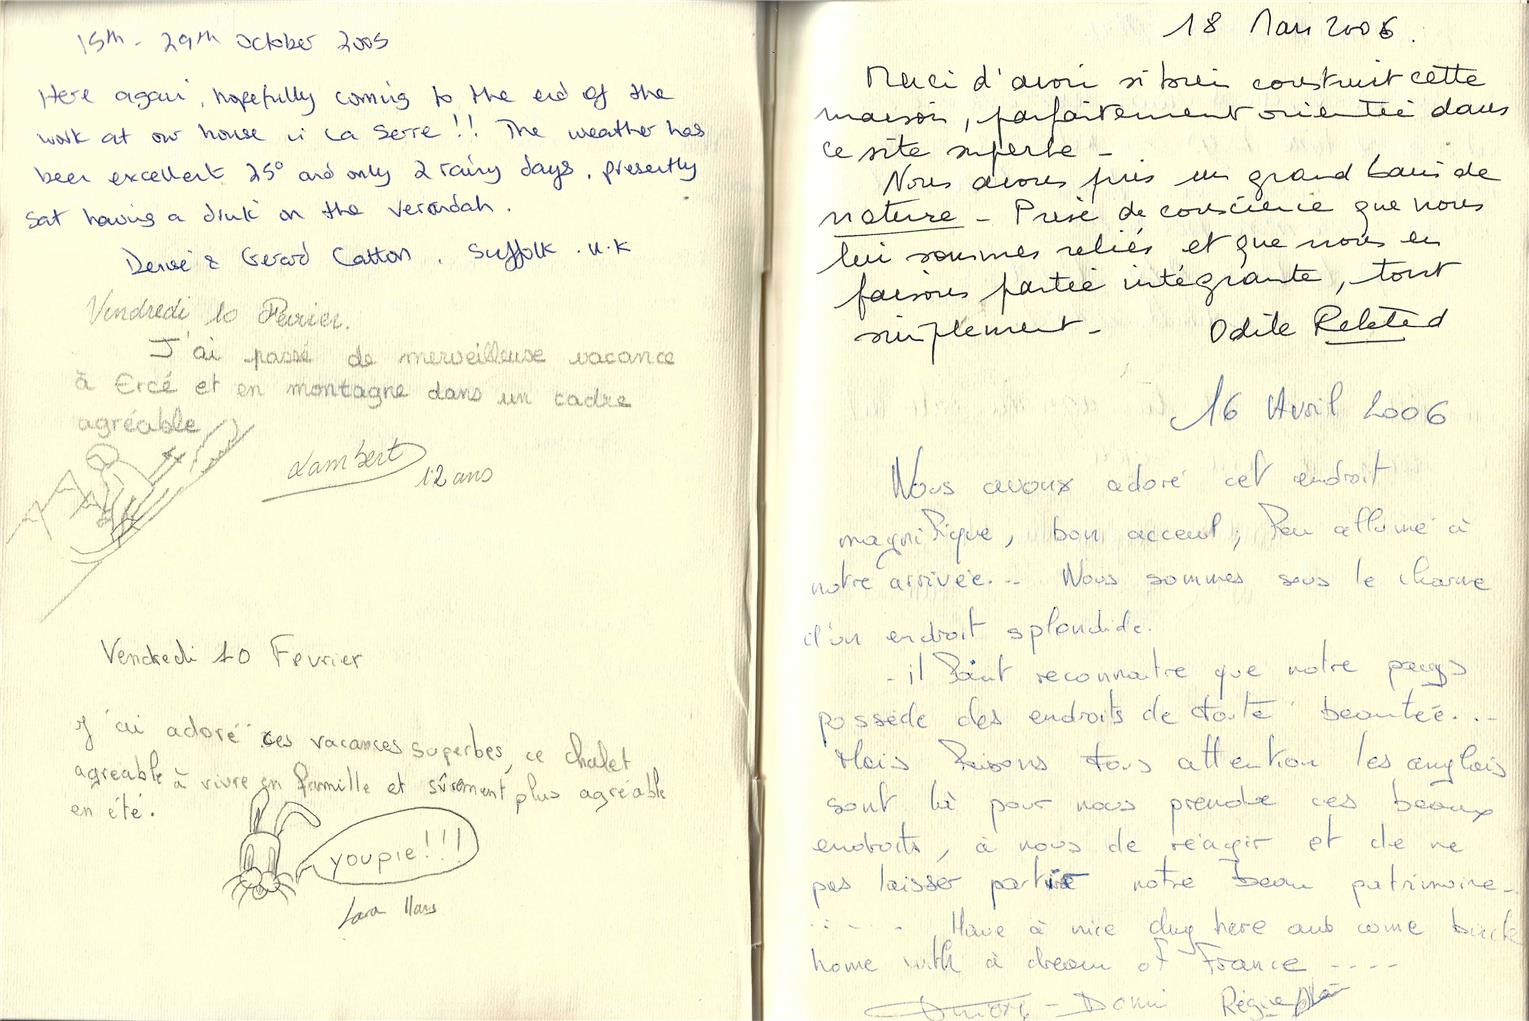 15th - 29th October 2005
Here again, hopefully coming to the end of the
work at our house in La Serre !! The weather has
been excellent 25° and only 2 rainy days, presently
sat having a drink on the verandah.
Denise & Gerard Catton, Suffolk. U.K
Vendredi 10 Fevrier.
J'ai passé de merveilleuse vacance
à Ercé et en montagne dans un cadre
agréable
Lambert 12 ans
Vendredi 10 Fevrier
J'ai adoré ces vacances superbes, ce chalet
agreable à vivre en famille et sûrement plus agréable
en été.
youpie!!!
Lara
18 Mars 2006.
Merci d'avoir si bien construit cette
maison, parfaitement orientée dans
ce site superbe -
Nous avons pris un grand bain de
nature - Prise de conscience que nous
lui sommes reliés et que nous en
faisons partie intégrante, tout
simplement - Odile
16 Avril 2006
Nous avoux adoré cet endroit
magnifique, bon acceuil, feu allumé à
notre arrivée... Nous sommes sous le charme
d'un endroit splendide.
- il faut reconnaitre que notre pays
possède des endroits de toute beautée...
Mais faisons tous attention les anglais
sont là pour nous prendre ces beaux
endroits, à nous de réagir et de ne
pas laisser partir notre beau patrimoine...
..... Have à nice day here and come back
home with à dream of France ----
Domi Régine